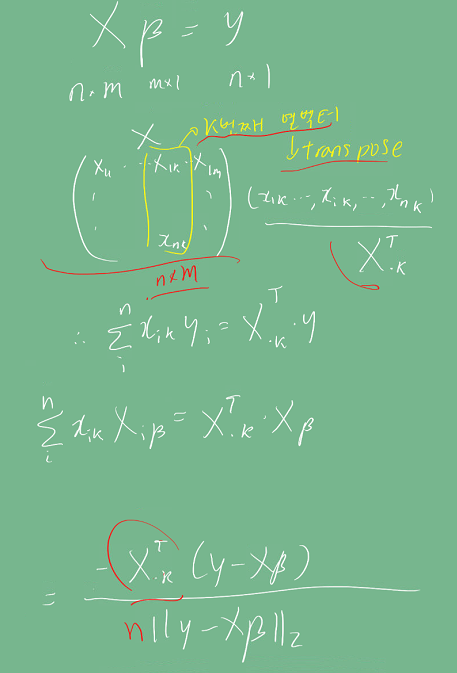 Xβ = y
n×m m×1 n×1
X → K번째 열벡터
↓ transpose
x₁₁ ⋯ x₁ₖ ⋯ x₁ₘ
(x₁ₖ ⋯, xᵢₖ, ⋯, xₙₖ)
xₙₖ
X.ₖᵀ
n×m
∴ Σᵢⁿ xᵢₖ yᵢ = X.ₖᵀ · y
Σᵢⁿ xᵢₖ Xᵢβ = X.ₖᵀ · Xβ
-X.ₖᵀ (y - Xβ)
=
n||y - Xβ||₂